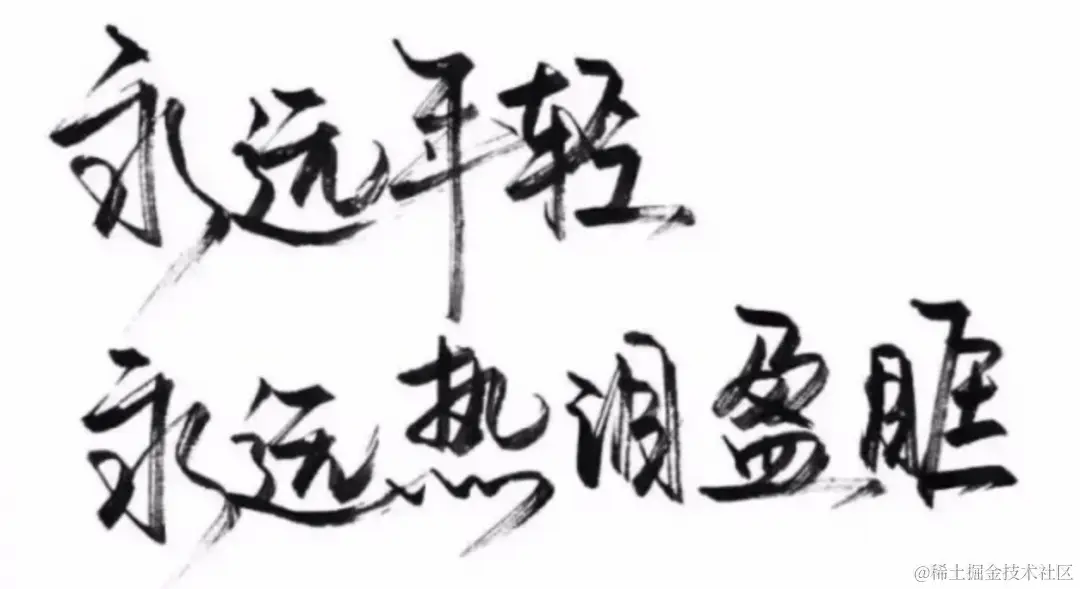 永远年轻
永远热泪盈眶
@稀土掘金技术社区